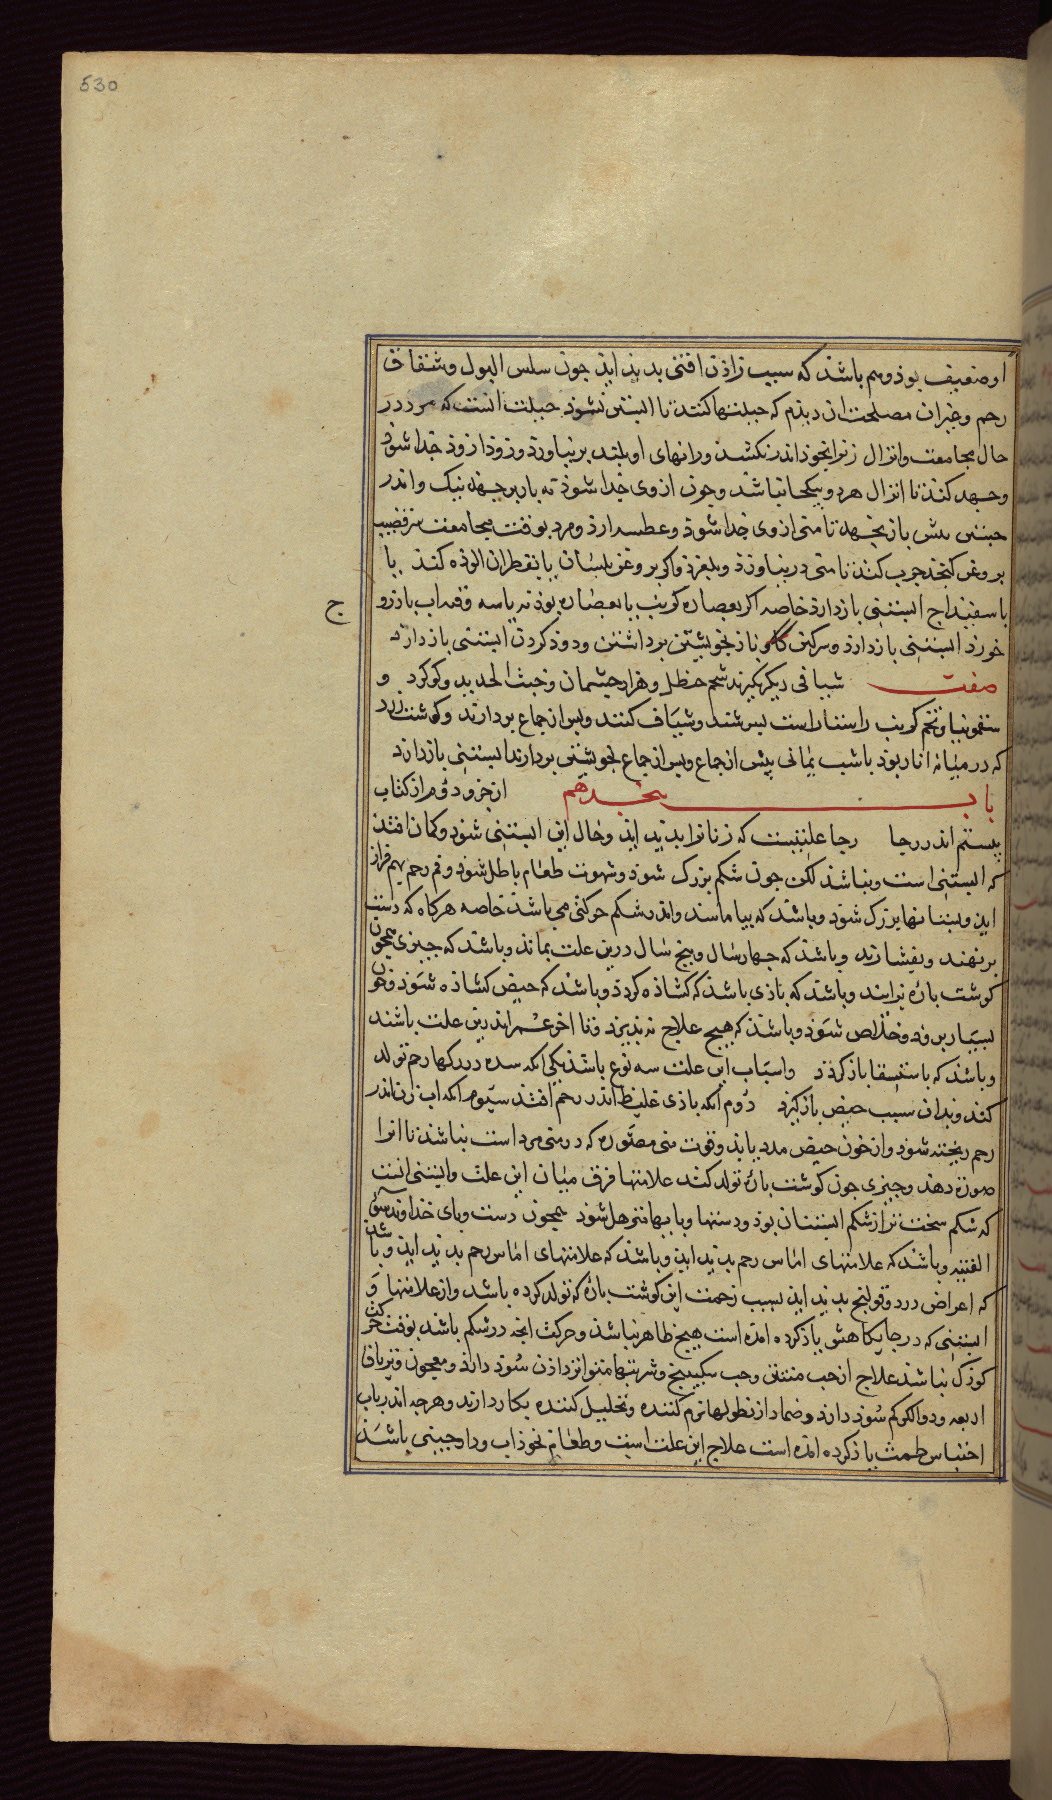 530
او ضعیف بوذ وهم باشذ که سبب زاذن افتی بدید ایذ چون سلس البول وشقاق
رحم وغیر ان مصلحت ان دیذم که حیلتها کنند تا ابستن نشوذ حیلت انست که مرد در
حال مجامعت وانزال زنرا بخوذ اندر نکشد ورانهای او بلند بر نیاورد وزوذ از وذ جدا شوذ
وجهد کند تا انزال هردو بیکجا نباشد وچون ازوی جدا شوذ نه بار برجهذ نیک واندر
جستن پس باز بجهذ تا منی ازوی جدا شوذ وعطسه ارذ ومرد بوقت مجامعت سر قضیب
بروغن کنجذ چرب کند تا منی در نیاوذ وبلغزد واکر بروغن بلسان یا بقطران الوذه کند یا
باسفیذاج ابستنی باز دارد خاصه اکر بعصاره کرنب یا بعصاره بوذنه یا سه وقیه اب باذرو
ج
خورد ابستنی باز دارد وسرکین کاو تازه بخویشتن برداشتن ودوذ کردن ابستنی باز دارد
صفت شیافی دیکر بکیرند شحم حنظل وهزارجشان وخبث الحدید وکوکرد و
سقمونیا وتخم کرنب راستاراست بسرشند وشیاف کنند وپس از جماع بردارند وکوشت زرد
که در میانه انار بوذ باشب یمانی پیش از جماع وپس از جماع بخویشتن بردارند ابستنی باز دارد
باب هجدهم از جزو دوم از کتاب
بیستم اندر رجا رجا علتیست که زنانرا بدید ایذ وحال این ابستنی شوذ وکمان افتذ
که ابستنی است ونباشذ لکن چون شکم بزرک شوذ وشهوت طعام باطل شوذ وفم رحم بهم فراز
ایذ وپستانها بزرک شوذ وباشذ که بیاماسد واندر شکم حرکتی می باشد خاصه هرکاه که دست
بر نهند وبفشارند وباشذ که چهار سال وپنج سال درین علت بماند وباشذ که چیزی همچون
کوشت باره بزایند وباشذ که باذی باشذ که کشاذه کردد وباشذ که حیض کشاذه شوذ وخون
بسیار برود وخلاص شوذ وباشذ که هیچ علاج نه پذیرد وتا اخر عمر اندرین علت باشند
وباشذ که باستسقا باز کردد واسباب این علت سه نوع باشذ یکی انکه سده در رکها رحم تولد
کند وبذان سبب حیض باز کیرد دوم انکه باذی غلیظ اندر رحم افتد سیوم انکه اب زن اندر
رحم ریخته شوذ واز خون حیض مدد یابد وقوت منی مصوره که در منی مرد است نباشد تا انرا
صورة دهد وچیزی چون کوشت باره تولد کند علامتها فرق میان این علت وابستنی انست
که شکم سخت تر از شکم ابستنان بوذ ودستها وپایها مترهل شوذ همچون دست وپای خداوند سوء
القنیه وباشذ که علامتهای اماس رحم بدید ایذ وباشذ که علامتهای اماس رحم بدید ایذ وباشذ
که اعراض درد وقولنج بدید ایذ بسبب زحمت این کوشت باره که تولد کرده باشد واز علامتها و
ابستنی که در جایکاهش یاذ کرده امده است هیچ ظاهر نباشذ وحرکت انچه در شکم باشذ بوقت حرکت
کوذک نباشذ علاج ازحب منتن وحب سکبینج وشربتها متواتر دادن سوذ دارد ومعجون وتریاق
اربعه ودوالکرکم سوذ دارد وضماد از نطولها نرم کننده وتحلیل کننده بکار دارند وهرچه اندر باب
احتباس طمث یاذ کرده امده است علاج این علت است وطعام نخوذاب ودارچینی باشذ